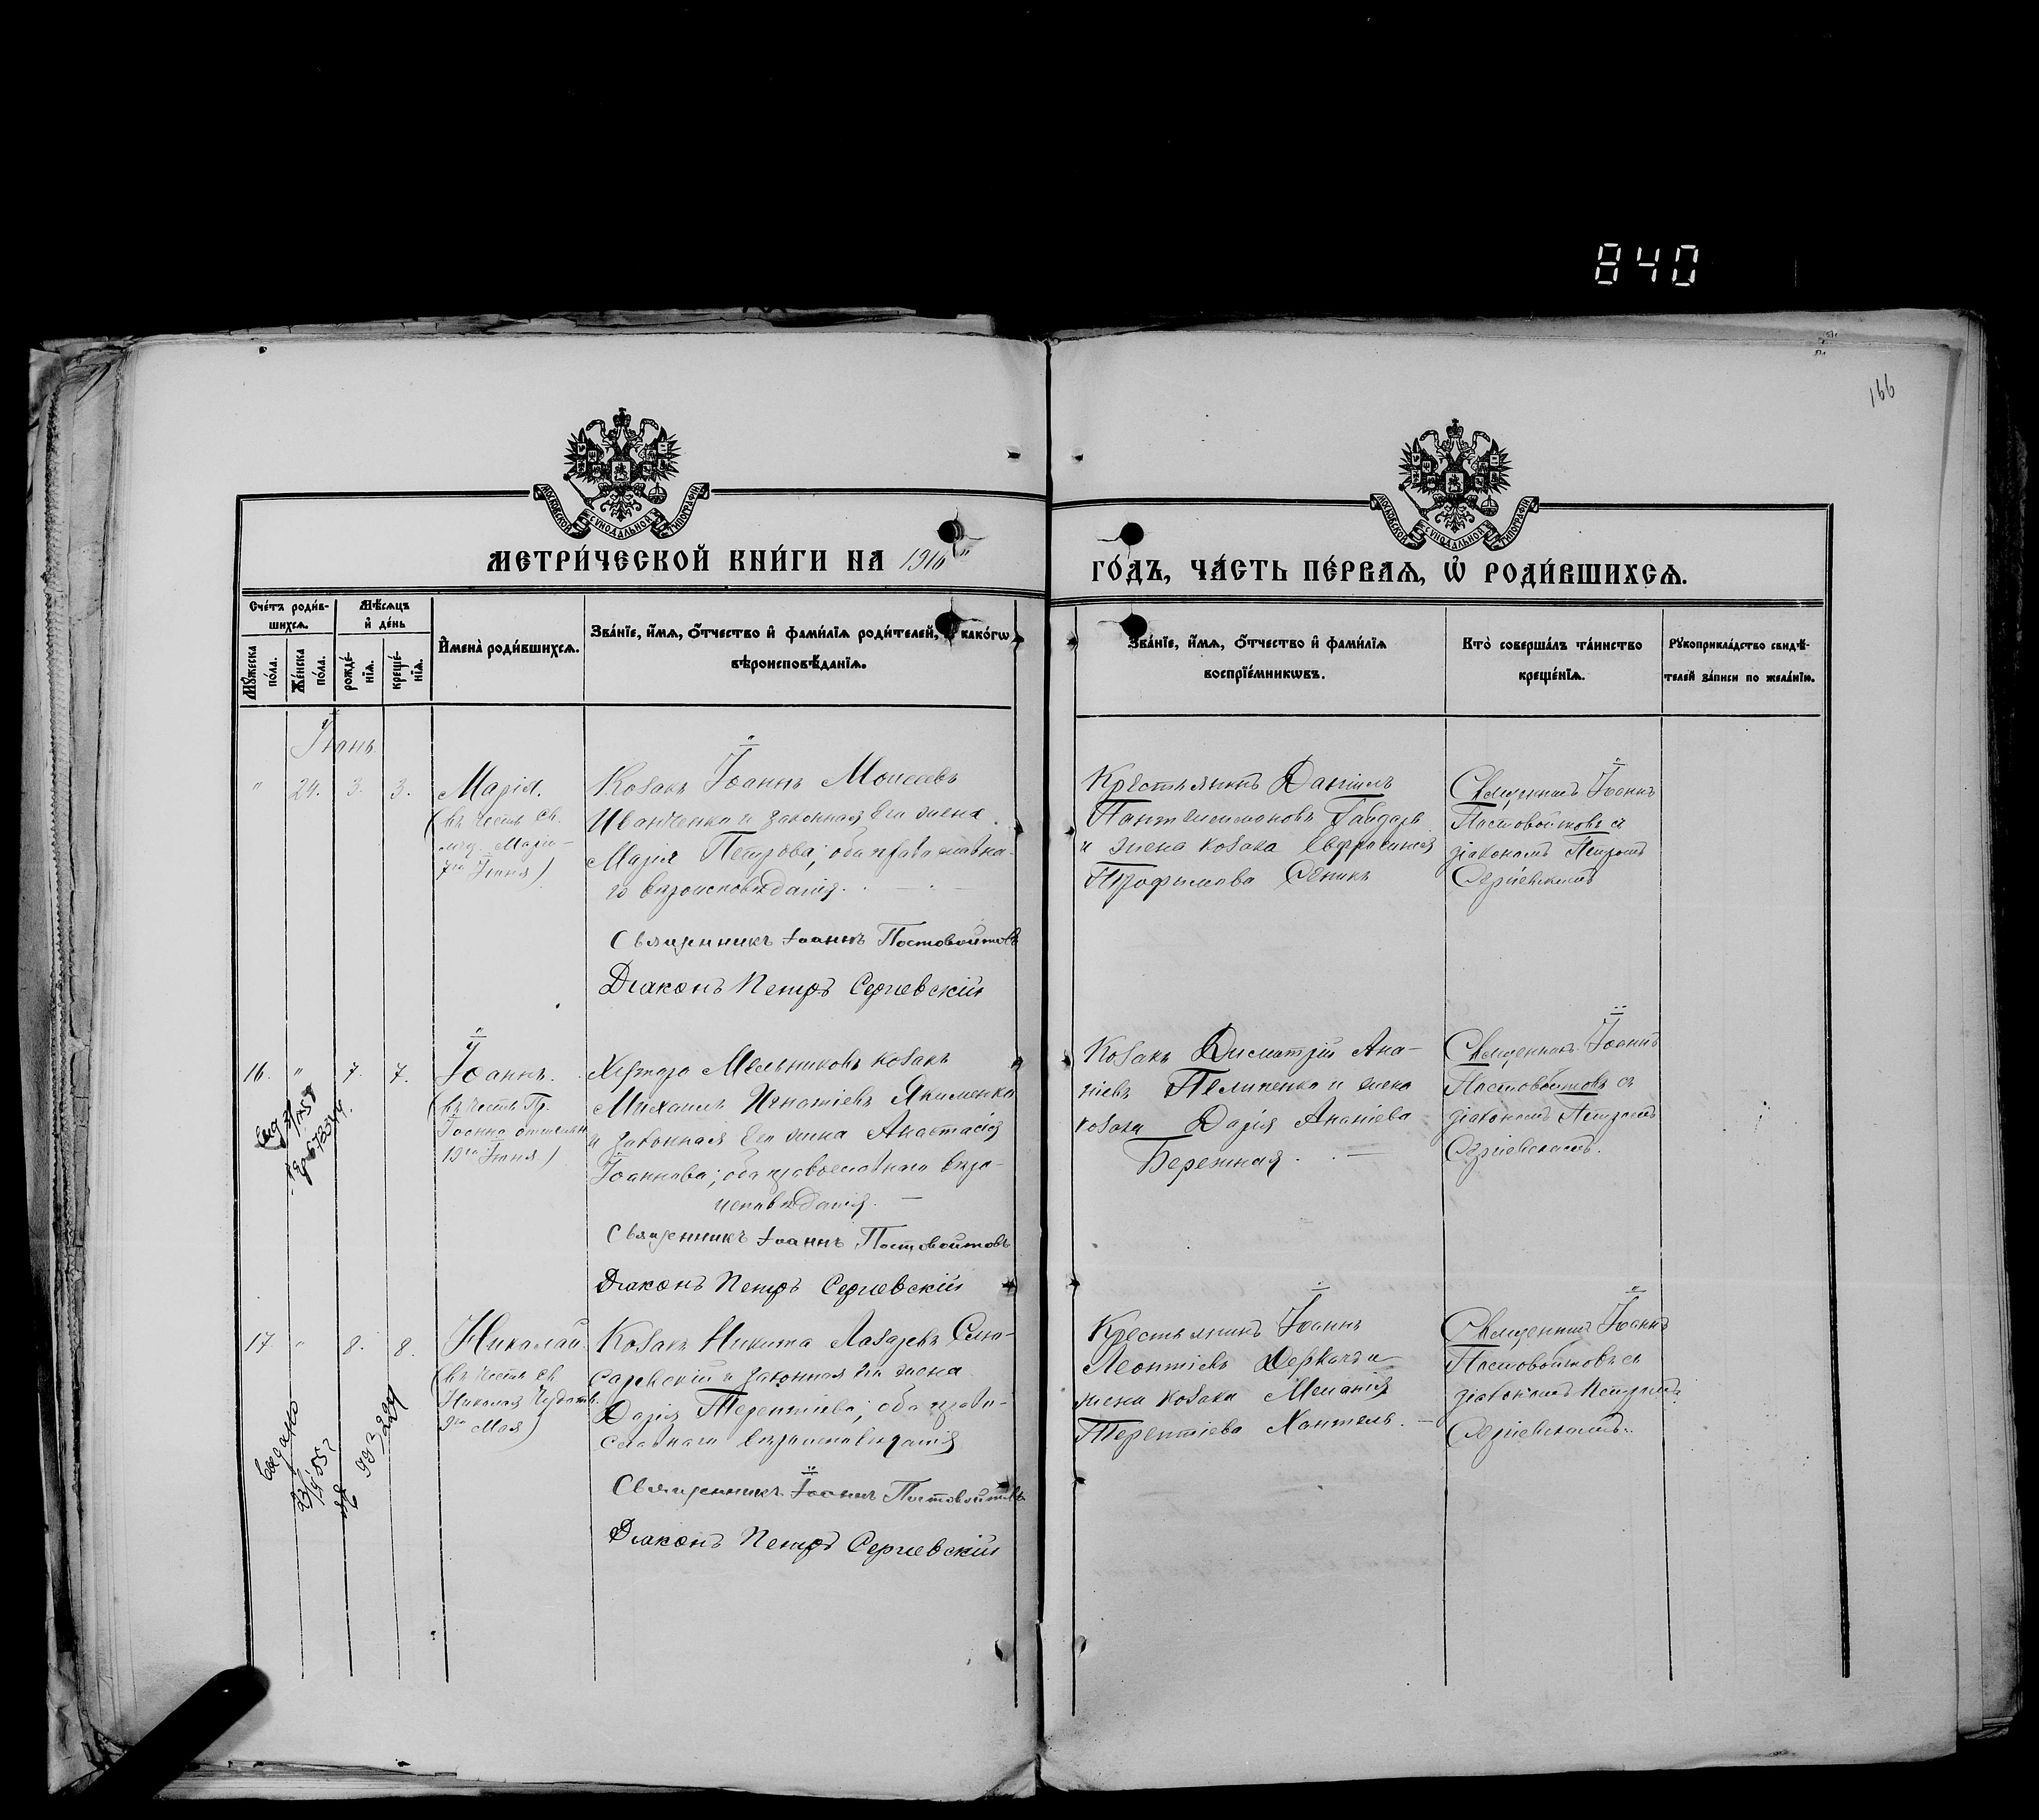 840
166
МОСКОВСКОЙ СѴНОДАЛЬНОЙ ТИПОГРАФІИ
МОСКОВСКОЙ СѴНОДАЛЬНОЙ ТИПОГРАФІИ
МЕТРИ́ЧЕСКОЙ КНИ́ГИ НА 1916
ГО́ДЪ, ЧА́СТЬ ПЕ́РВАѦ, Ѡ҆ РОДИ́ВШИХСѦ.
Сче́тъ роди́в-
шихсѧ.
Мꙋ́жеска
по́ла.
Же́нска
по́ла.
Мѣ́сѧцъ
и҆ де́нь
рожде́-
нїѧ.
креще́-
нїѧ.
И҆мена̀ роди́вшихсѧ.
Зва́нїе, и҆́мѧ, ѻ҆́тчество и҆ фами́лїѧ роди́телей, и҆ како́гѡ
вѣроисповѣ́данїѧ.
Зва́нїе, и҆́мѧ, ѻ҆́тчество и҆ фами́лїѧ
воспрїе́мникѡвъ.
Кто̀ соверша́лъ та́инство
креще́нїѧ.
Рꙋкоприкла́дство свидѣ́-
телей за́писи по жела́нїю.
Іюнь
" 24. 3. 3.
Марія.
(въ честь св.
мч. Маріи
7го Іюня)
Козакъ Іоаннъ Моисеевъ
Иванченко и законная его жена
Марія Петрова; оба православна-
го вѣроисповѣданія.
Священникъ Іоаннъ Постовойтовъ
Діаконъ Петръ Сергіевскій
Крестьянинъ Даніилъ
Пантелеимоновъ Гайдарь
и жена козака Евфросинія
Трофимова Сѣникъ
Священникъ Іоаннъ
Постовойтовъ съ
діакономъ Петромъ
Сергіевскимъ
16. " 7. 7.
Іоаннъ.
(въ честь Пр.
Іоанна отшельн.
19го Іюня)
Хутора Мельниковъ козакъ
Михаилъ Игнатіевъ Якименко
и законная его жена Анастасія
Іоаннова; оба православнаго вѣро-
исповѣданія.
Священникъ Іоаннъ Постовойтовъ
Діаконъ Петръ Сергіевскій
Козакъ Димитрій Ана-
ніевъ Пелипенко и жена
козака Дарія Ананіева
Бережная.
Священникъ Іоаннъ
Постовойтовъ съ
діакономъ Петромъ
Сергіевскимъ.
17. " 8. 8.
Николай
(въ честь св.
Николая Чудотв.
9го Мая)
Козакъ Никита Лазаревъ Слю-
саревскій и законная его жена
Дарія Терентіева; оба право-
славнаго вѣроисповѣданія
Священникъ Іоаннъ Постовойтовъ
Діаконъ Петръ Сергіевскій
Крестьянинъ Іоаннъ
Леонтіевъ Деркачъ и
жена козака Меланія
Терентіева
Священникъ Іоаннъ
Постовойтовъ съ
діакономъ Петромъ
Сергіевскимъ.